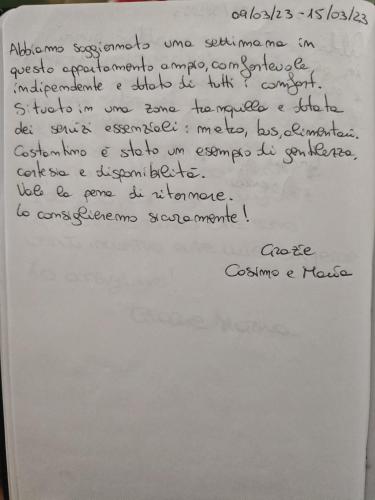 09/03/23 - 15/03/23
Abbiamo soggiornato una settimana in
questo appartamento ampio, confortevole
indipendente e dotato di tutti i comfort.
Situato in una zona tranquilla e dotata
dei servizi essenziali: metro, bus, alimentari.
Costantino è stato un esempio di gentilezza,
cortesia e disponibilità.
Vale la pena di ritornare.
Lo consiglieremo sicuramente!
Grazie
Cosimo e Maria